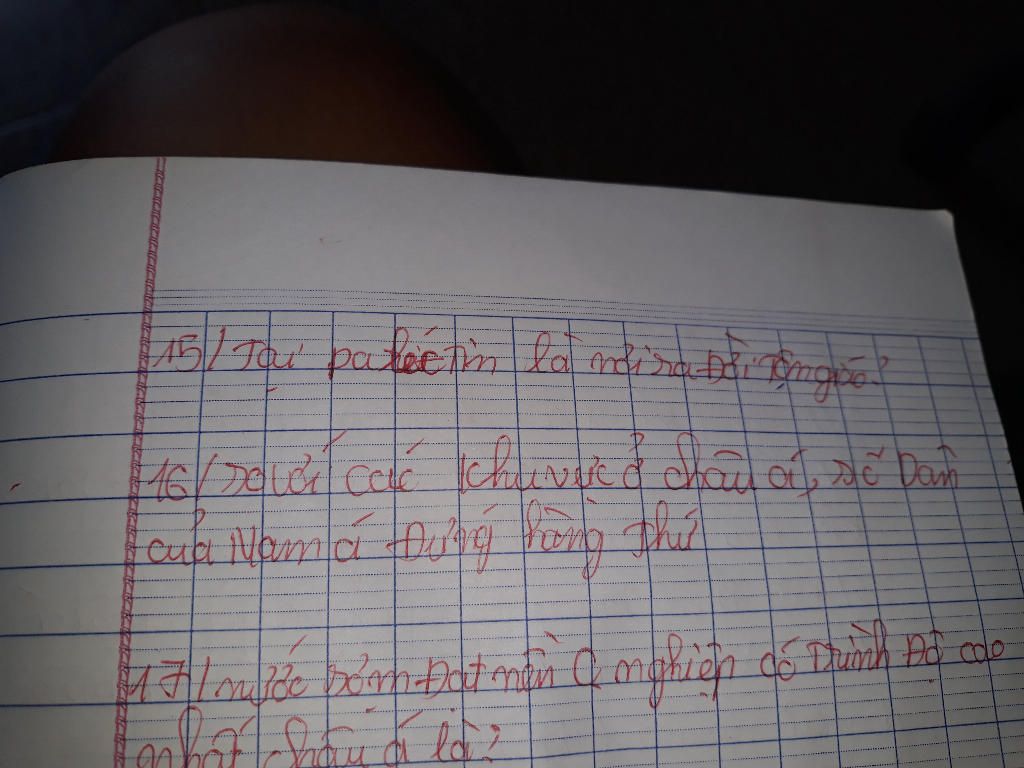 15/ Tại paléctin là nơi ra Đời Tôn giáo?
16/ so với các khu vực ở châu á, số Dân
của Nam á Đứng hàng thứ
17/ nước sớm Đạt nền C nghiệp có Trình Độ cao
nhất châu á là?